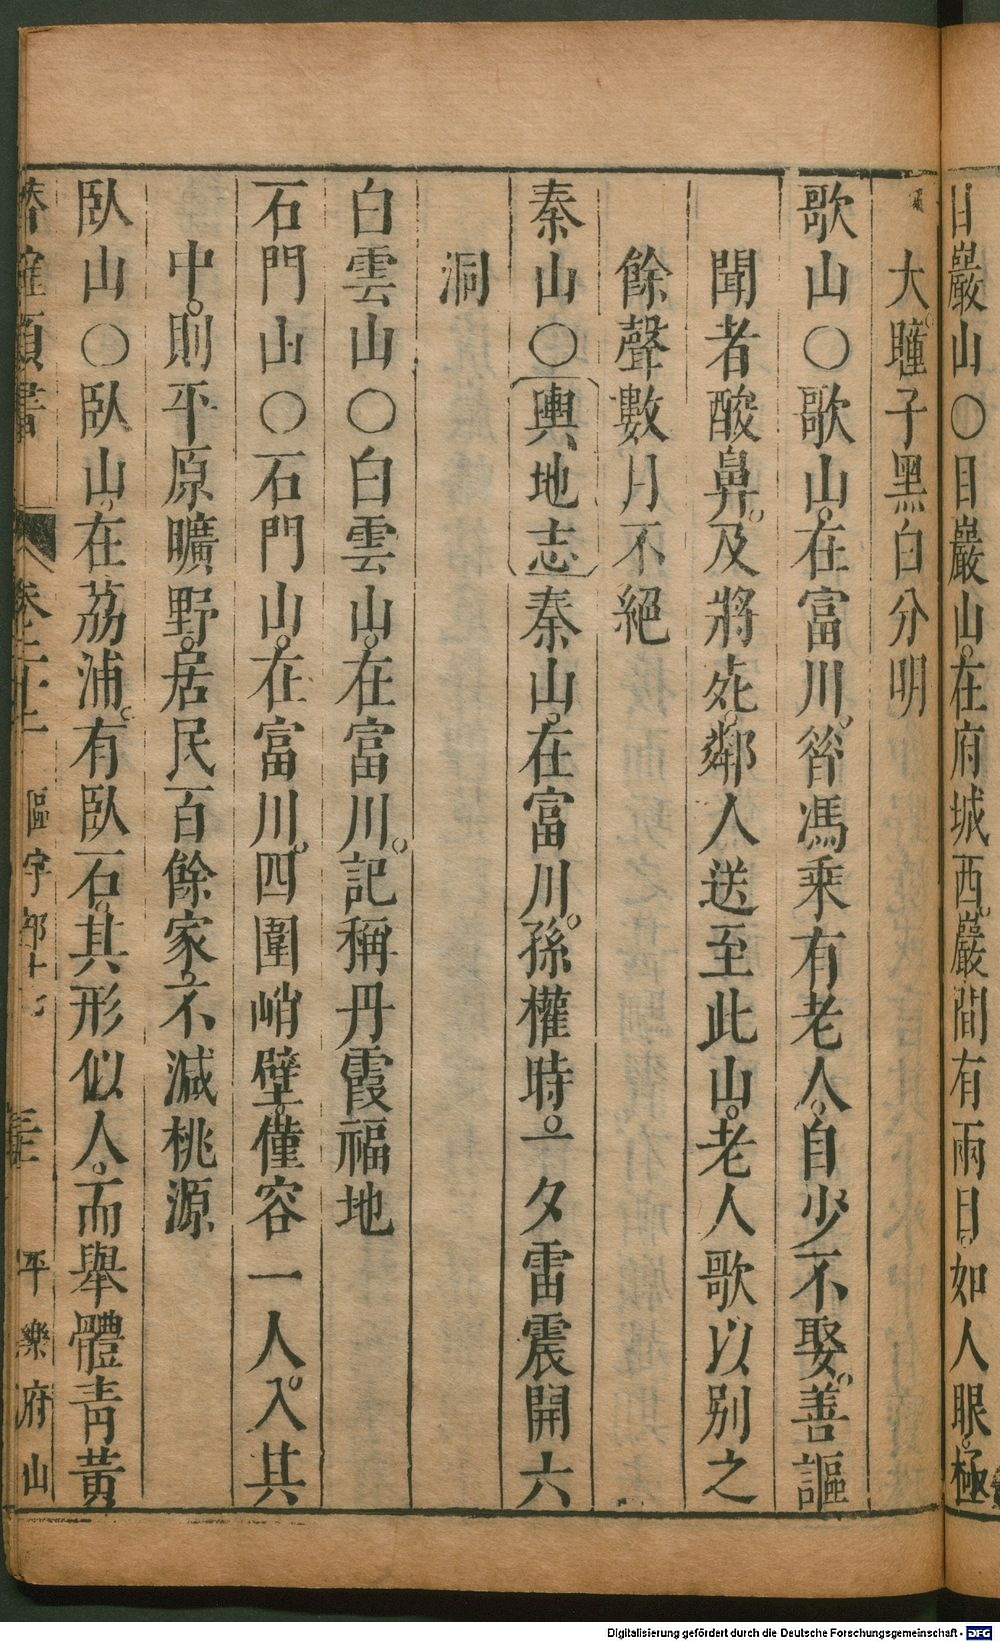 目巖山○目巖山。在府城西。巖間有兩目。如人眼。極
大。瞳子黑白分明
歌山○歌山。在富川。昝馮乘有老人。自少不娶。善謳
聞者酸鼻。及將死。鄰人送至此山。老人歌以别之
餘聲數月不絕
秦山○輿地志秦山。在富川。孫權時。一夕雷震開六
洞
白雲山○白雲山。在富川。記稱丹霞福地
石門山○石門山。在富川。四圍峭壁。僅容一人入。其
中。則平原曠野。居民百餘家。不減桃源
臥山○臥山。在荔浦。有臥石。其形似人。而舉體青黃
類書 卷 區宇部十七 平樂府山
Digitalisierung gefördert durch die Deutsche Forschungsgemeinschaft - DFG